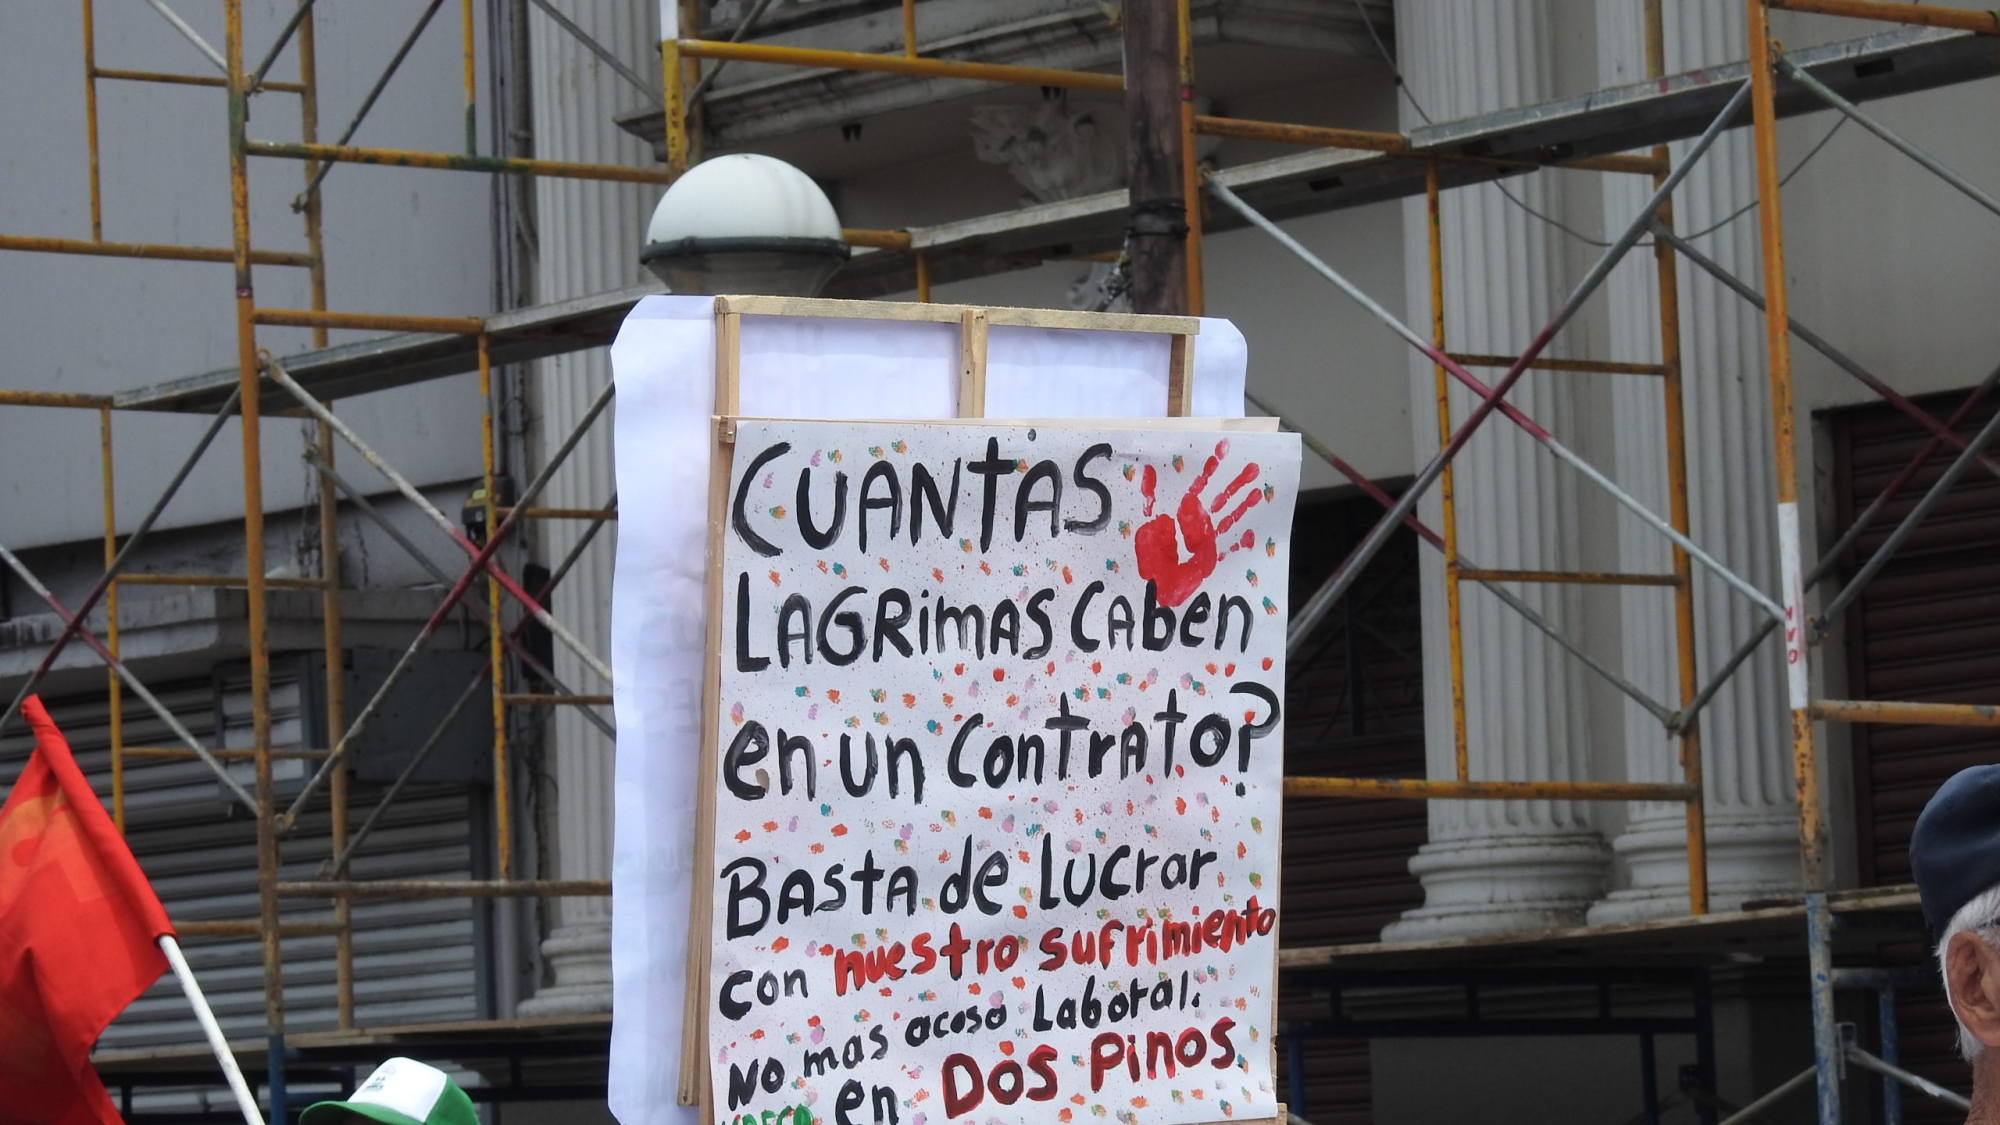 CUANTAS
LAGRimAS CAben
en un ContrATo?
BASTA de Lucrar
con nuestro sufrimiento
No mas acoso Laboral.
en Dos Pinos